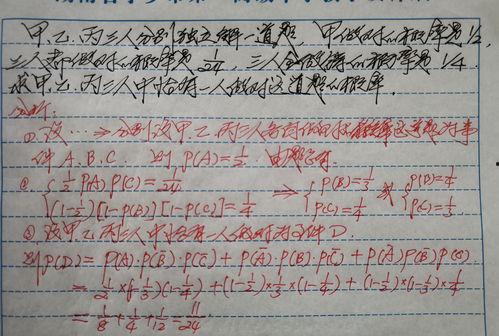 甲.乙.丙三人分别独立解一道题,甲做对的概率是1/2,
三人都做对的概率是1/24,三人全做错的概率是1/4.
求甲.乙.丙三人中恰有一人做对这道题的概率.
分析:
①设…→分别设甲.乙.丙三人各自做对这道题为事
件A.B.C. 则P(A)=1/2 由题意有
② { 1/2 P(B) P(C)=1/24 (1-1/2)[1-P(B)][1-P(C)]=1/4 ⟹ { P(B)=1/3 P(C)=1/4 或 { P(B)=1/4 P(C)=1/3
③设甲.乙.丙三人中恰有一人做对为事件D.
则P(D)=P(A)·P(B̄)·P(C̄)+P(Ā)·P(B)·P(C̄)+P(Ā)P(B̄)P(C)
=1/2×(1-1/3)(1-1/4)+(1-1/2)×1/3×(1-1/4)+(1-1/2)×(1-1/3)×1/4
=1/8+1/4+1/12=11/24